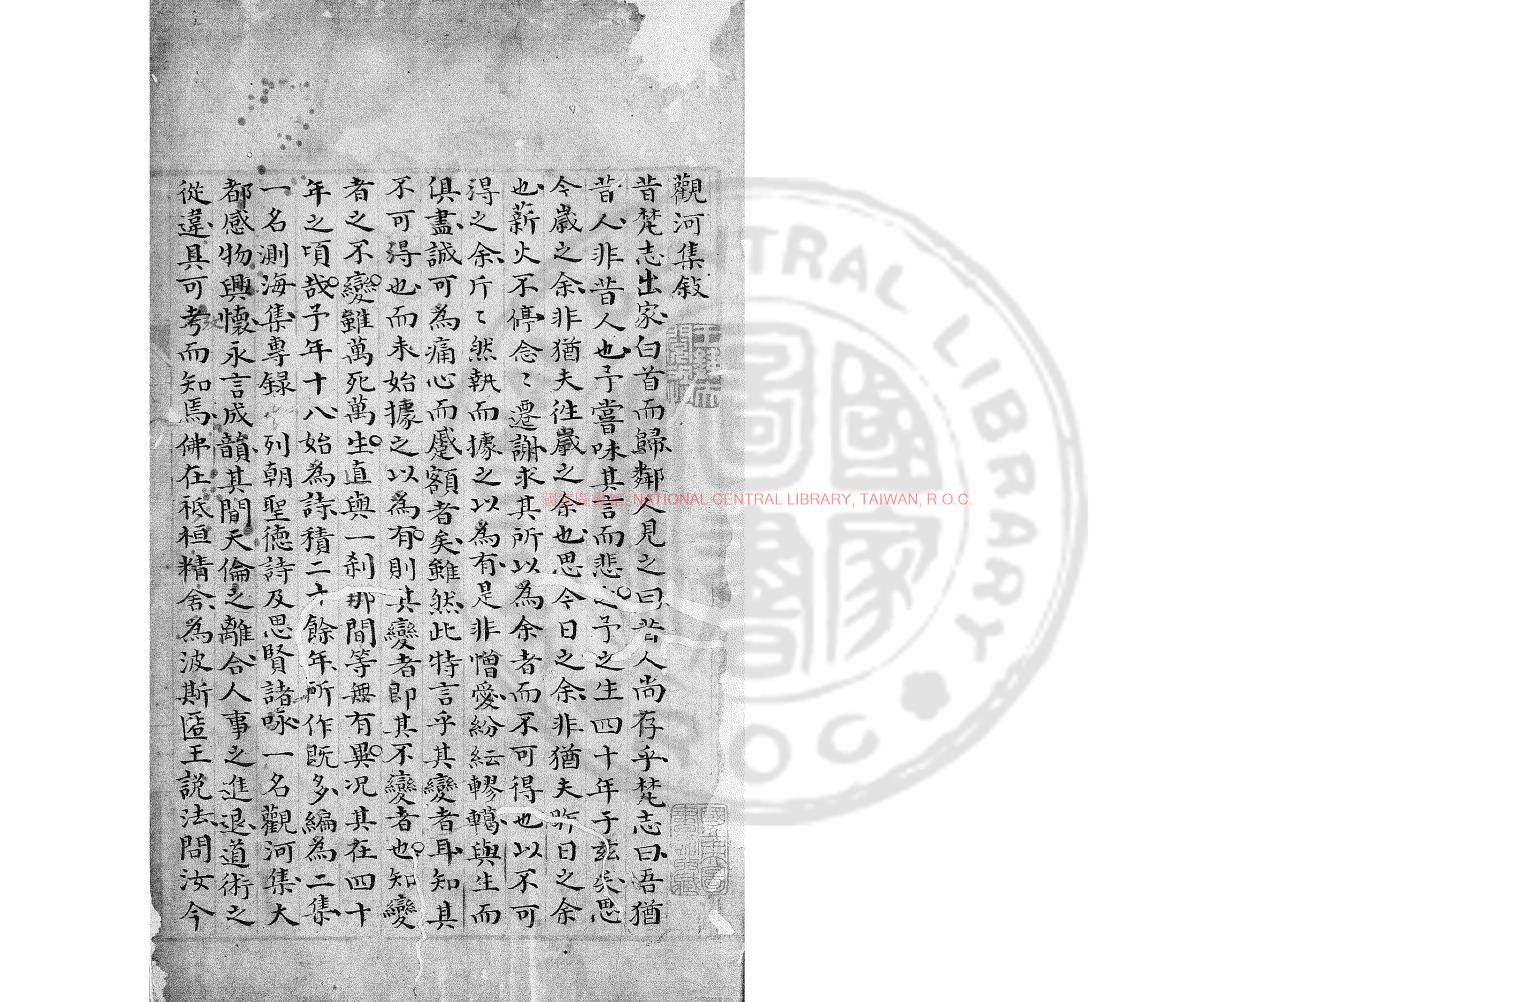 觀河集敍
昔梵志出家白首而歸鄰人見之曰昔人尚存乎梵志曰吾猶
昔人非昔人也予嘗味其言而悲之予之生四十年于茲矣思
今歲之余非猶夫徃歲之余也思今日之余非猶夫昨日之余
也薪火不停念〻遷謝求其所以為余者而不可得也以不可
得之余斤〻然執而據之以為有是非憎愛紛紜轇轕與生而
俱盡誠可為痛心而蹙額者矣雖然此特言乎其變者耳知其
不可得也而未始據之以為有則其變者即其不變者也知變
者之不變雖萬死萬生直與一刹那間等無有異况其在四十
年之頃哉予年十八始為詩積二十餘年所作既多編為二集
一名測海集專錄列朝聖德詩及思賢諸咏一名觀河集大
都感物興懷永言成韻其間天倫之離合人事之進退道術之
從違具可考而知焉佛在祗桓精舍為波斯匿王說法問汝今
國家圖書館, NATIONAL CENTRAL LIBRARY, TAIWAN, R.O.C.
CENTRAL LIBRARY
ROC